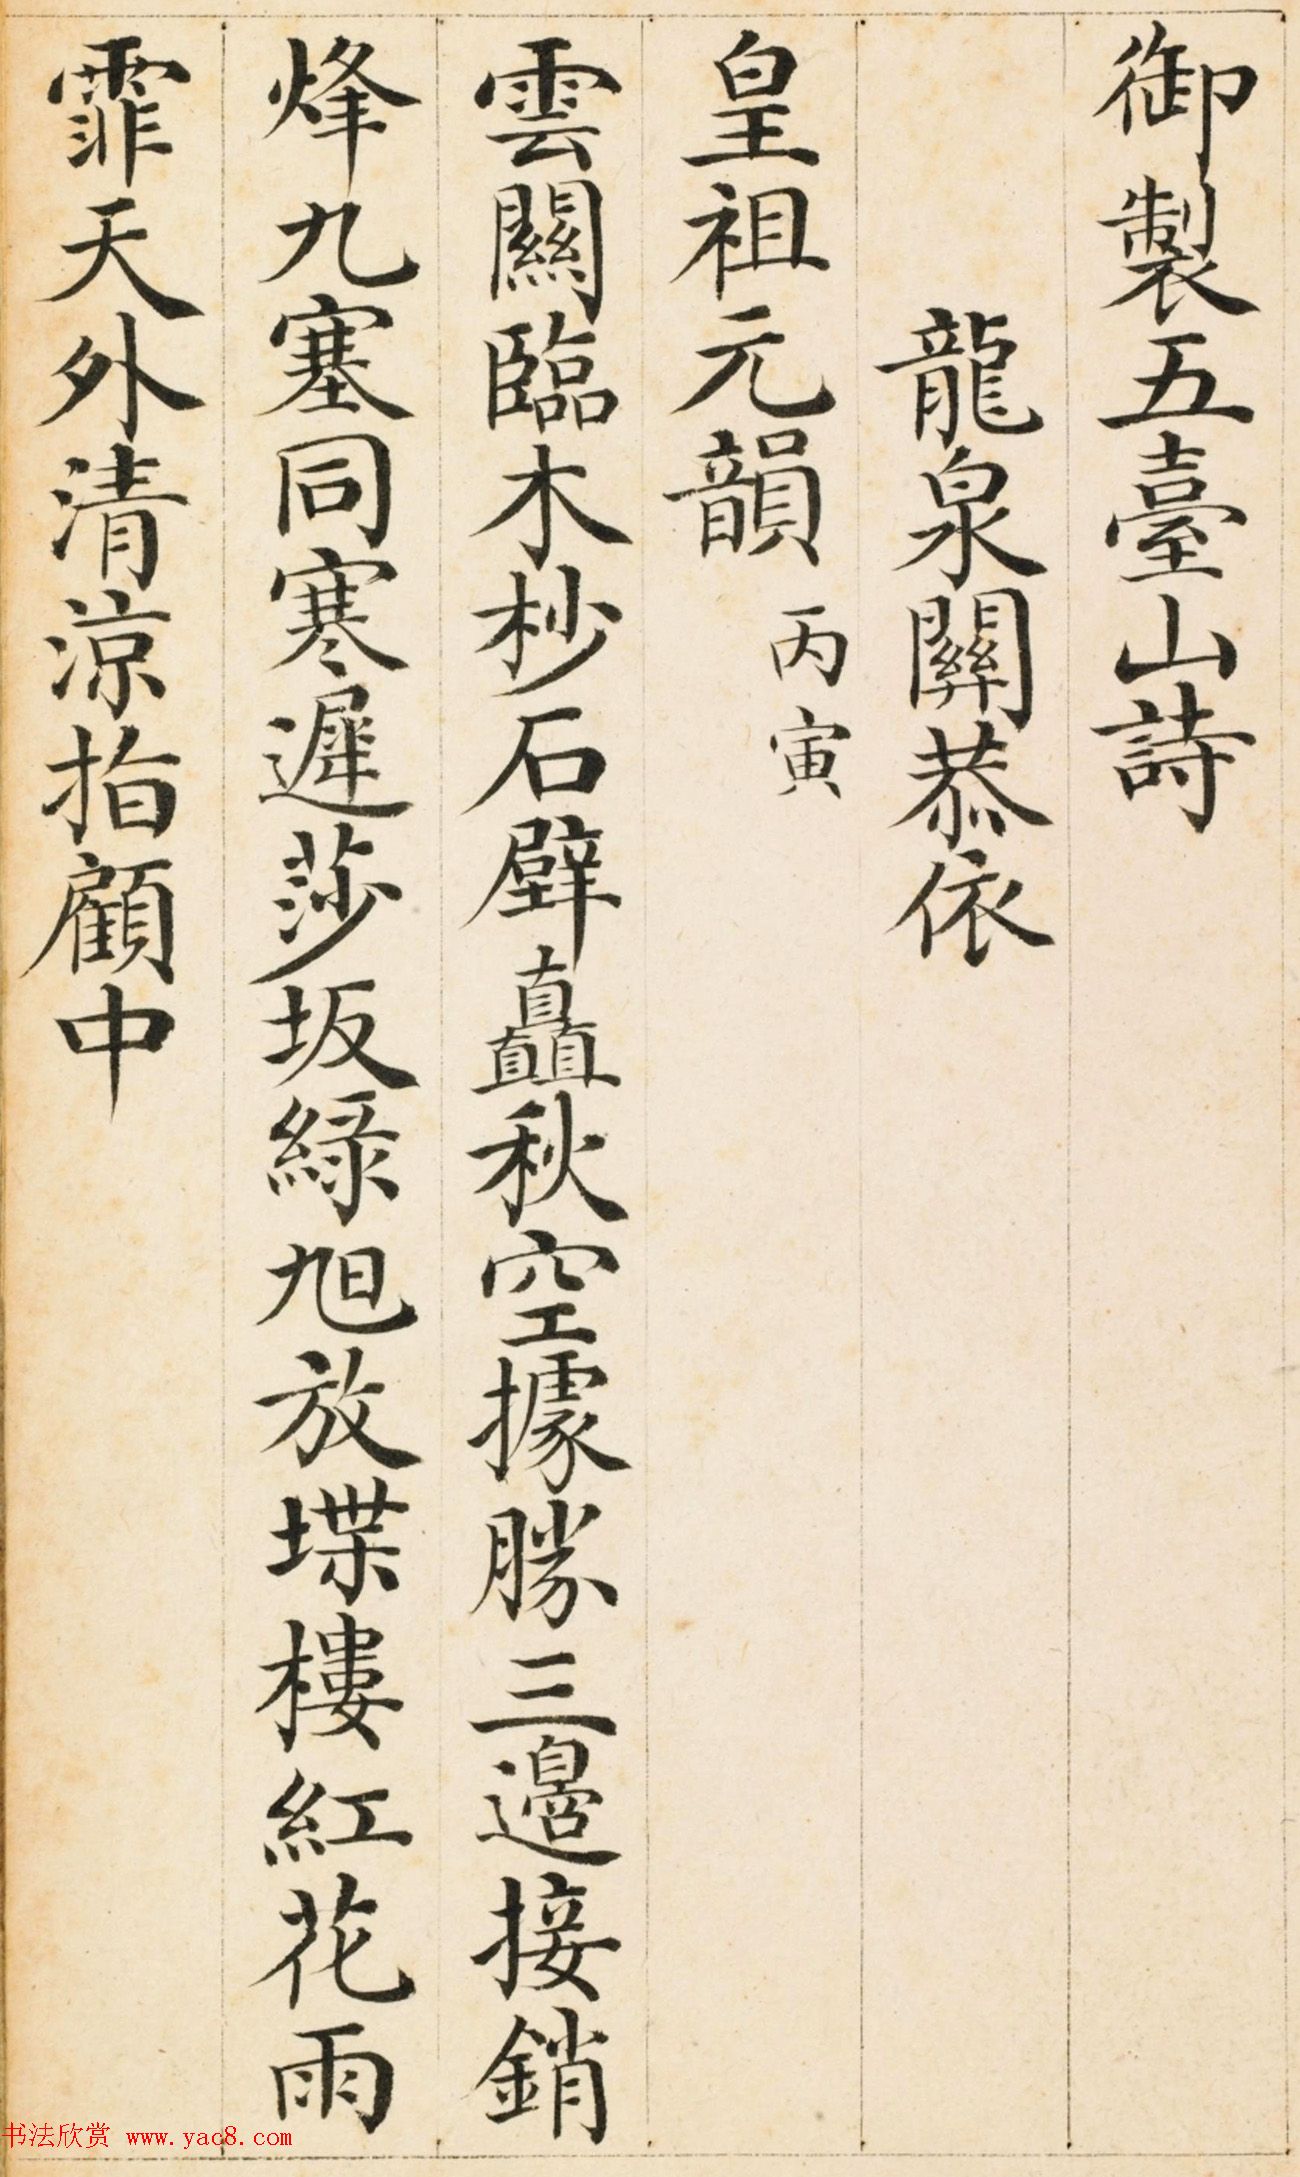 御製五臺山詩
龍泉關恭依
皇祖元韻 丙寅
雲關臨木杪石壁矗秋空據勝三邊接銷
烽九塞同寒遲莎坂綠旭放堞樓紅花雨
霏天外清涼指顧中
书法欣赏 www.yac8.com